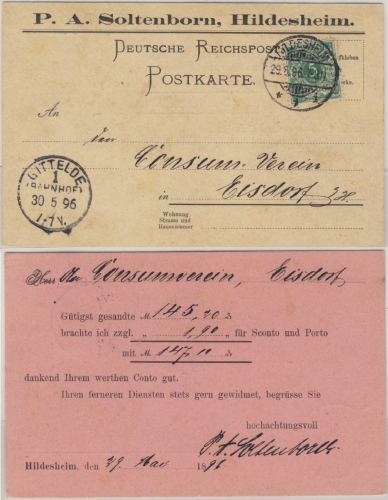 P. A. Soltenborn, Hildesheim.
DEUTSCHE REICHSPOST
POSTKARTE.
HILDESHEIM
29.5.96
An
Consum-Verein
in Eisdorf
Wohnung
Strasse und
Hausnummer
GITTELDE
1
(BAHNHOF)
30 5 96
1-7V.
Consumverein, Eisdorf
Gütigst gesandte M. 145,20 ₰
brachte ich zzgl. „ 1,90 „ für Sconto und Porto
mit M. 147,10 ₰
dankend Ihrem werthen Conto gut.
Ihren ferneren Diensten stets gern gewidmet, begrüsse Sie
hochachtungsvoll
P. A. Soltenborn
Hildesheim, den 29. Mai 1896